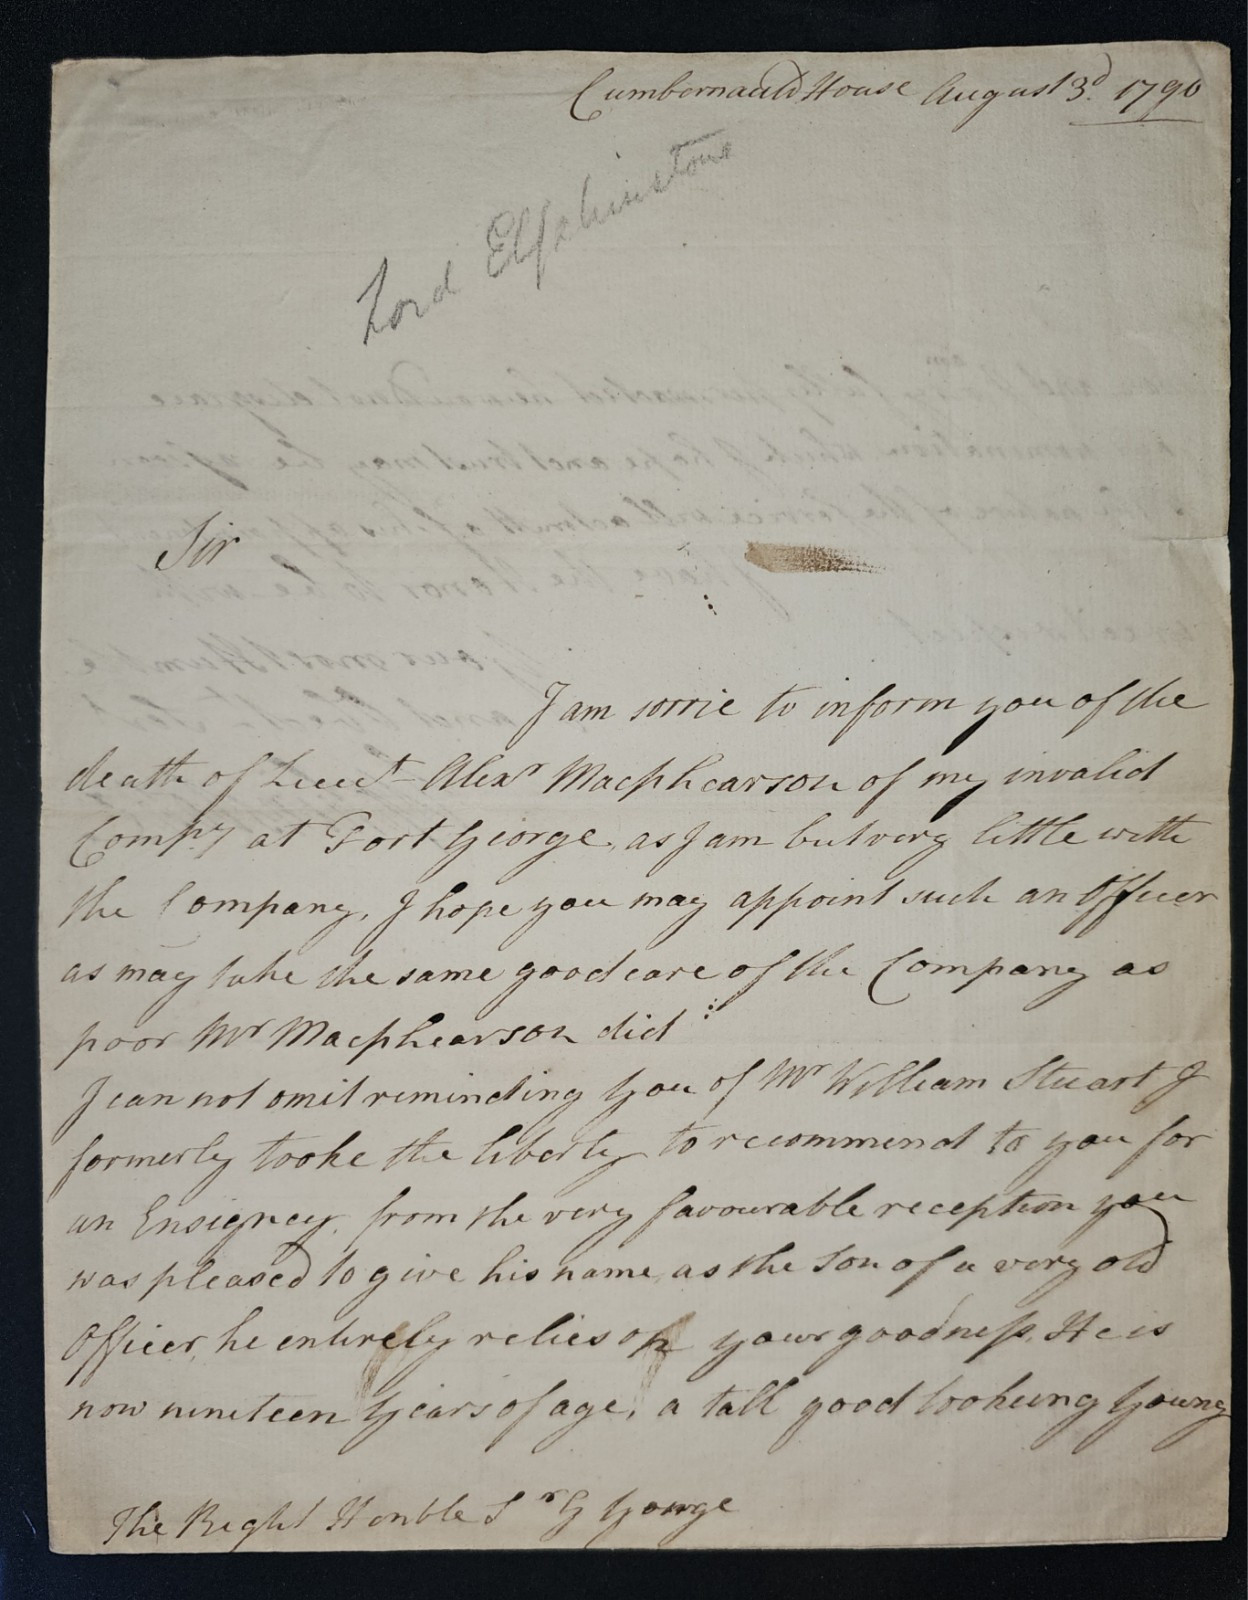 Cumbernauld House August 3d. 1790
Lord Elphinstone
Sir
I am sorrie to inform you of the
death of Lieut Alexr Macphearson of my invalid
Compy at Fort George, as I am but very little with
the Company, I hope you may appoint such an Officer
as may take the same good care of the Company as
poor Mr Macphearson did
I can not omit reminding you of Mr William Stuart I
formerly tooke the liberty to recommend to you for
an Ensigncy, from the very favourable reception you
was pleased to give his name, as the Son of a very old
Officer, he entirely relies on your goodness. He is
now nineteen years of age, a tall good looking young
The Right Honble Sr G Yonge